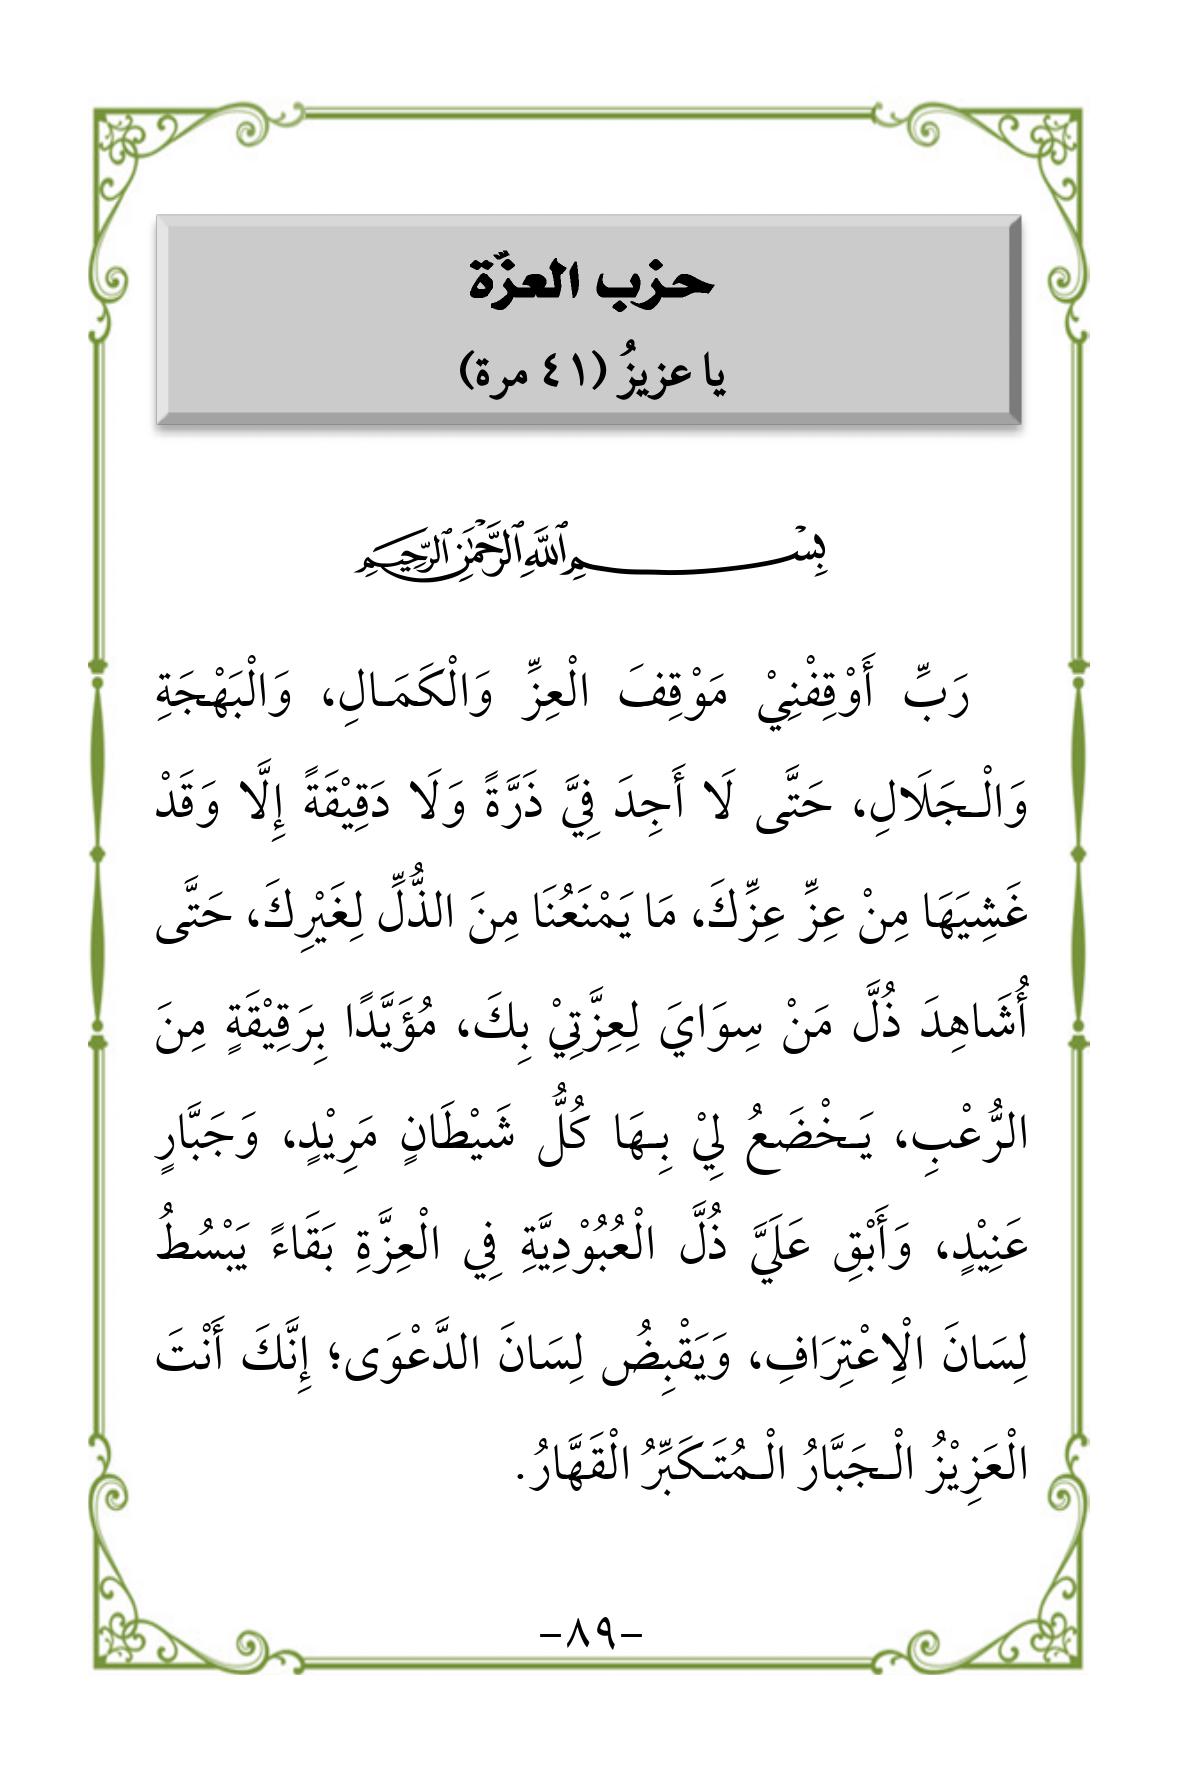 حزب العزّة
يا عزيزُ (٤١ مرة)
بِسْمِ ٱللَّهِ ٱلرَّحْمَٰنِ ٱلرَّحِيمِ
رَبِّ أَوْقِفْنِيْ مَوْقِفَ الْعِزِّ وَالْكَمَالِ، وَالْبَهْجَةِ
وَالْجَلَالِ، حَتَّى لَا أَجِدَ فِيَّ ذَرَّةً وَلَا دَقِيْقَةً إِلَّا وَقَدْ
غَشِيَهَا مِنْ عِزِّ عِزِّكَ، مَا يَمْنَعُنَا مِنَ الذُّلِّ لِغَيْرِكَ، حَتَّى
أُشَاهِدَ ذُلَّ مَنْ سِوَايَ لِعِزَّتِيْ بِكَ، مُؤَيَّدًا بِرَقِيْقَةٍ مِنَ
الرُّعْبِ، يَخْضَعُ لِيْ بِهَا كُلُّ شَيْطَانٍ مَرِيْدٍ، وَجَبَّارٍ
عَنِيْدٍ، وَأَبْقِ عَلَيَّ ذُلَّ الْعُبُوْدِيَّةِ فِي الْعِزَّةِ بَقَاءً يَبْسُطُ
لِسَانَ الْاِعْتِرَافِ، وَيَقْبِضُ لِسَانَ الدَّعْوَى؛ إِنَّكَ أَنْتَ
الْعَزِيْزُ الْجَبَّارُ الْمُتَكَبِّرُ الْقَهَّارُ.
-٨٩-